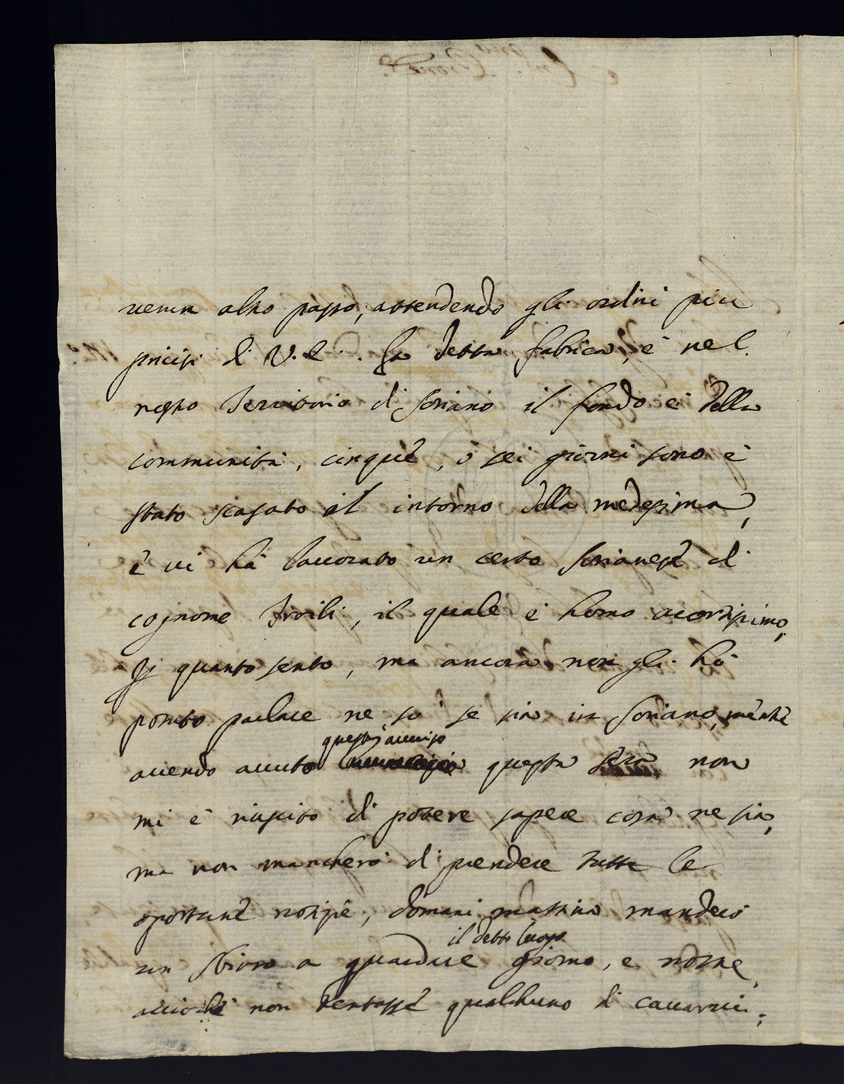 altro passo, attendendo gli ordini più
precisi di V. E. . La detta fabrica, è nel
territorio di Soriano il fondo è della
communità, cinque, ò sei giorni sono è
stato scavato al intorno della medesima,
è vi hà lavorato un certo Sorianese di
cognome Troili, il quale è homo acortissimo,
per quanto sento, ma ancora non gli hò
potuto parlare ne sò se sia in Soriano, mentre
quest'avviso
avendo avuto questa sera non
mi è riuscito di potere sapere cosa ne sia,
ma non mancherò di prendere tutte le
oportune notizie, domani mattina manderò
il detto luogo
un sbirro a guardare giorno, e notte,
acciochè non tentasse qualchuno di cavarvi;